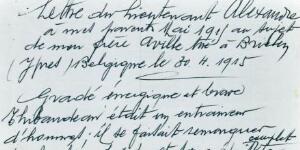 Lettre du lieutenant Alexandre
a mes parents Mai 1915 au sujet
de mon frère Aville tué à
(Ypres) Belgique le 30.4.1915
Gradé énergique et brave
Thibaudeau était un entraineur
d'hommes, il se faisait remarquer
complet